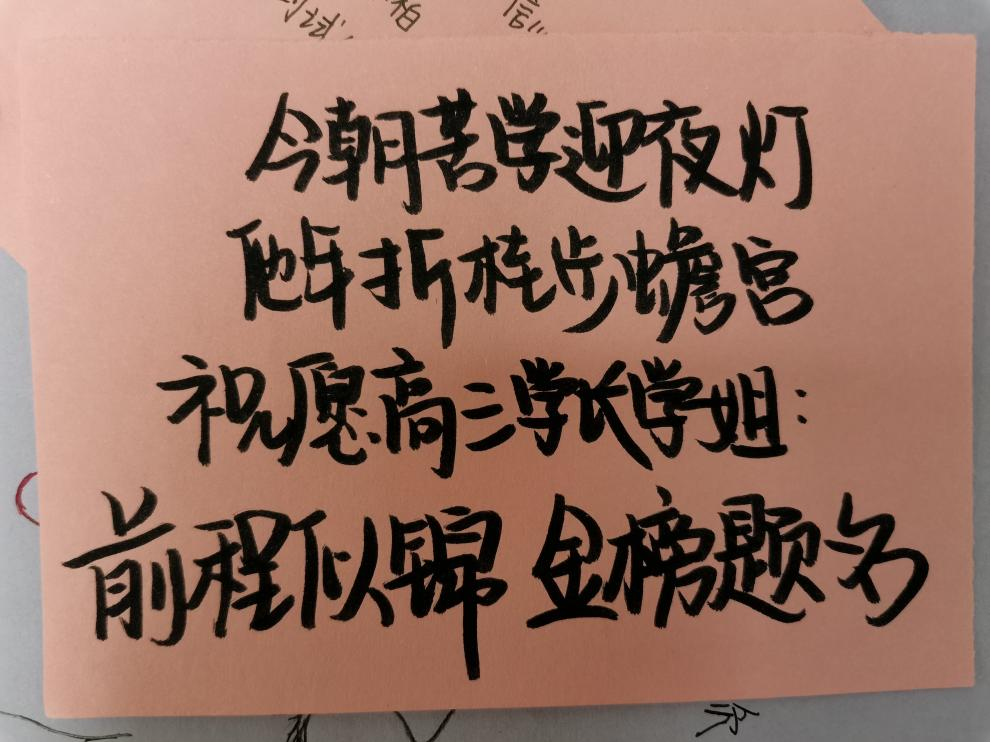 今朝苦学迎夜灯
他年折桂步蟾宫
祝愿高三学长学姐:
前程似锦 金榜题名